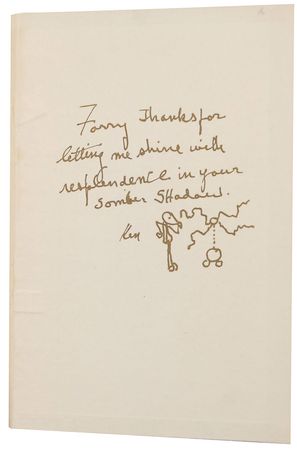 Forry Thanks for
letting me shine with
resplendence in your
Somber Shadow.
Ken